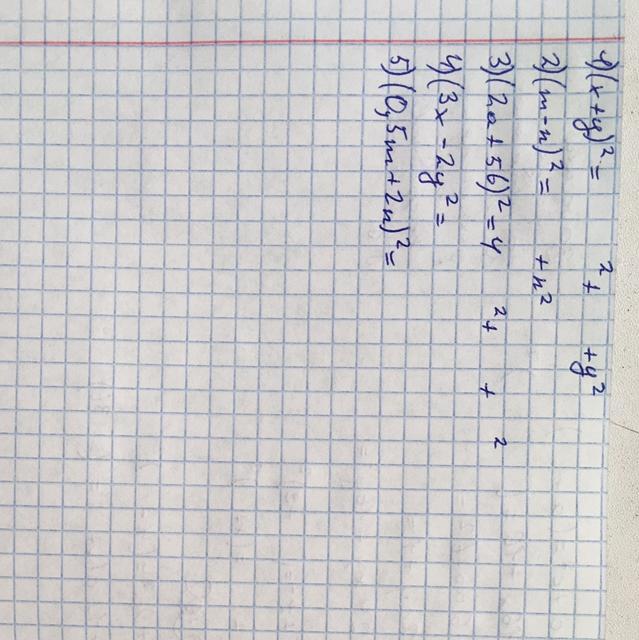 1) (x+y)² = ² + + y²
2) (m-n)² = + n²
3) (2a+5б)² = 4 ² + + ²
4) (3x - 2y² =
5) (0,5m+2n)² =